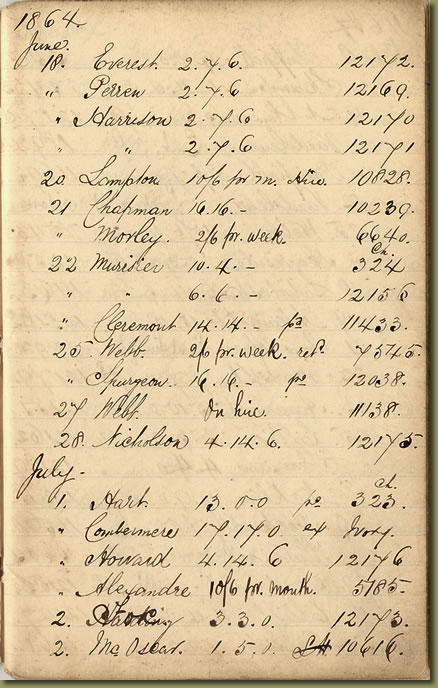 1864.
June.
18. Everest. 2.7.6. 12172.
" Perren 2.7.6 12169.
" Harrison 2.7.6 12170
" " 2.7.6 12171
20. Lampton 10/6 pr m. Hire. 10828.
21 Chapman 16.16.- 10239.
" Morley. 2/6 pr. week. 6640.
Ch.
22 10.4.- 324
" " 6.6.- 12156
" Cleremont 14.14.- 11433.
25 Webb. 2/6 pr. week. retd. 7545.
" Spurgeon. 16.16.- 12038.
27 Webb. On hire. 11138.
28. Nicholson 4.14.6. 12175.
July.
Ch.
1. Hart. 13.0.0 323.
" Combermere 17.17.0 ex Ivory.
" Howard 4.14.6 12176
" Alexandre 10/6 pr. month. 5185.
2. 3.3.0. 12173.
2. Mc Oscar. 1.5.0. 10616.